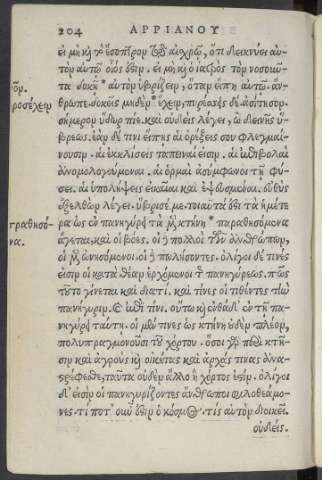 204 ΑΡΡΙΑΝΟΥ
εἰ μὴ καὶ τὸ ἔσοπτρον τῷ αἰσχρῷ, ὅτι δεικνύει αὐ-
τὸν αὑτῷ οἷός ἐστιν. εἰ μὴ καὶ ὁ ἰατρὸς τὸν νοσοῦν-
τα δοκεῖ* αὐτὸν ὑβρίζειν, ὅταν εἴπῃ αὐτῷ. ἄν-
θρωπε, δοκεῖς μηδὲν* ἔχειν, πυρέσσεις δὲ. ἀσίτησον
σήμερον ὕδωρ πίε. καὶ οὐδεὶς λέγει, ὢ δεινῆς ὕ-
βρεως. ἐὰν δέ τινι εἴπῃς αἱ ὀρέξεις σου φλεγμαί-
νουσιν. αἱ ἐκκλίσεις ταπειναί εἰσιν. αἱ ἐπιβολαὶ
ἀνομολογούμεναι. αἱ ὁρμαὶ ἀσύμφωνοι τῇ φύ-
σει. αἱ ὑπολήψεις εἰκαῖαι καὶ ἐψευσμέναι. εὐθὺς
ἐξελθὼν λέγει. ὕβρισέ με. τοιαῦτά ἐστι τὰ ἡμέτε-
ρα ὡς ἐν πανηγύρει τὰ μὲν κτήνη* παραθησόμενα
ἄγεται, καὶ οἱ βόες. οἱ δὲ πολλοὶ τῶν ἀνθρώπων,
οἱ μὲν ὠνησόμενοι. οἱ δὲ πωλήσοντες. ὀλίγοι δέ τινές
εἰσιν οἱ κατὰ θέαν ἐρχόμενοι τῆς πανηγύρεως. πῶς
τοῦτο γίνεται καὶ διατί. καὶ τίνες οἱ τιθέντες τὴν
πανήγυριν. καὶ ἐπὶ τίνι. οὕτω καὶ ἐνθάδε ἐν τῇ πα-
νηγύρει ταύτῃ. οἱ μέν τινες ὡς κτήνη οὐδὲν πλέον,
πολυπραγμονοῦσι τοῦ χόρτου. ὅσοι γὰρ περὶ κτῆ-
σιν καὶ ἀγροὺς καὶ οἰκέτας καὶ ἀρχάς τινας ἀνα-
στρέφεσθε, ταῦτα οὐδὲν ἄλλο ἢ χόρτος ἐστίν. ὀλίγοι
δ' εἰσὶν οἱ πανηγυρίζοντες ἄνθρωποι φιλοθεάμο-
νες. τί ποτ' οὖν ἐστιν ὁ κόσμος. τίς αὐτὸν διοικεῖ.
οὐδείς.
ροσέχειν
παραθησόμε-
να.